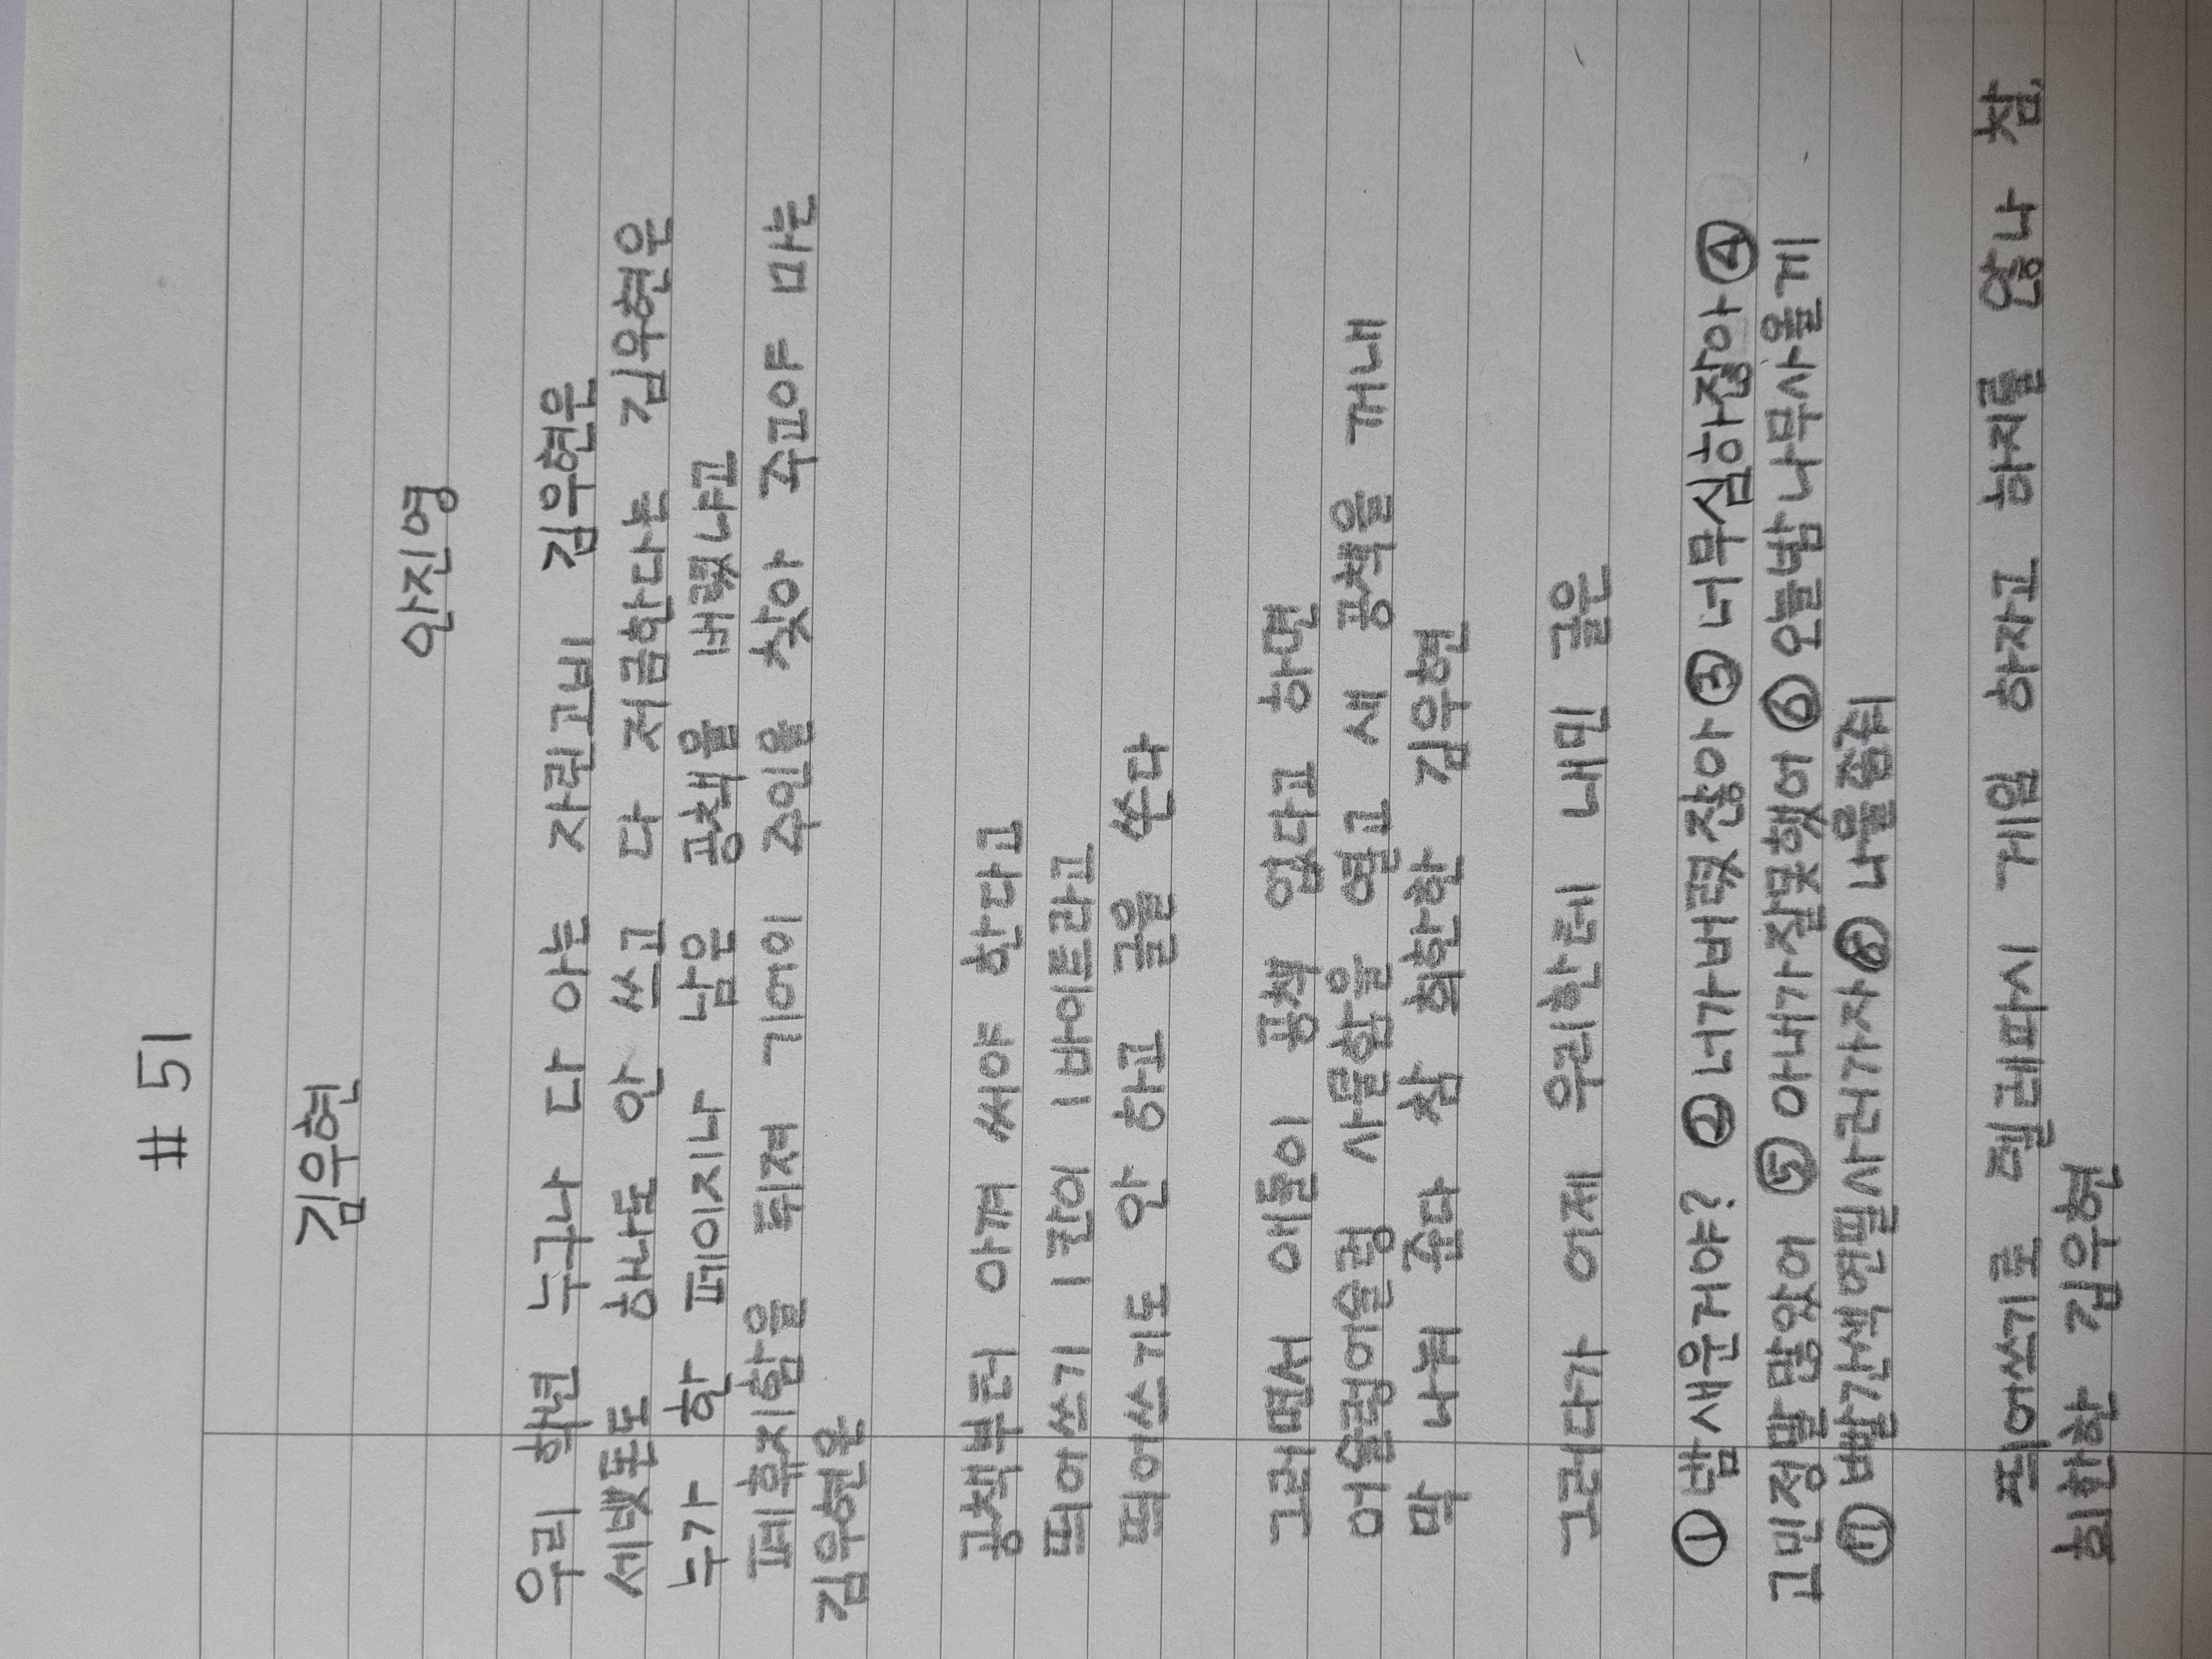 # 51
김우현
안진영
우리 학년 누구나 다 아는 자린고비 김우현은
세뱃돈도 하나도 안 쓰고 다 저금한다는 김우현은
누가 한 페이지나 남은 공책을 버렸냐고
폐휴지함을 뒤져 기어이 주인을 찾아 주고야 마는
김우현은
공책부터 아껴 써야 한다고
띄어쓰기 1칸이 1바이트라고
띄어쓰기도 안 하고 글을 쓴다
그러면서 애들이 공책 없다고 하면
어슬렁어슬렁 사물함을 열고 새 공책을 꺼내
막 나눠 준다 참 희한한 김우현
그러다가 어제 우리한테 내민 글은
①밤새운거야? ②너가버렸잖아③너무심하잖아④
고민정말많았어 ⑤아내가잘못했어⑥오늘밤나무사올게
⑦빨간색연필사러가자⑧나물좀줘
띄어쓰기로 텔레파시 게임 하자고 하지를 않나 참,
희한한 김우현